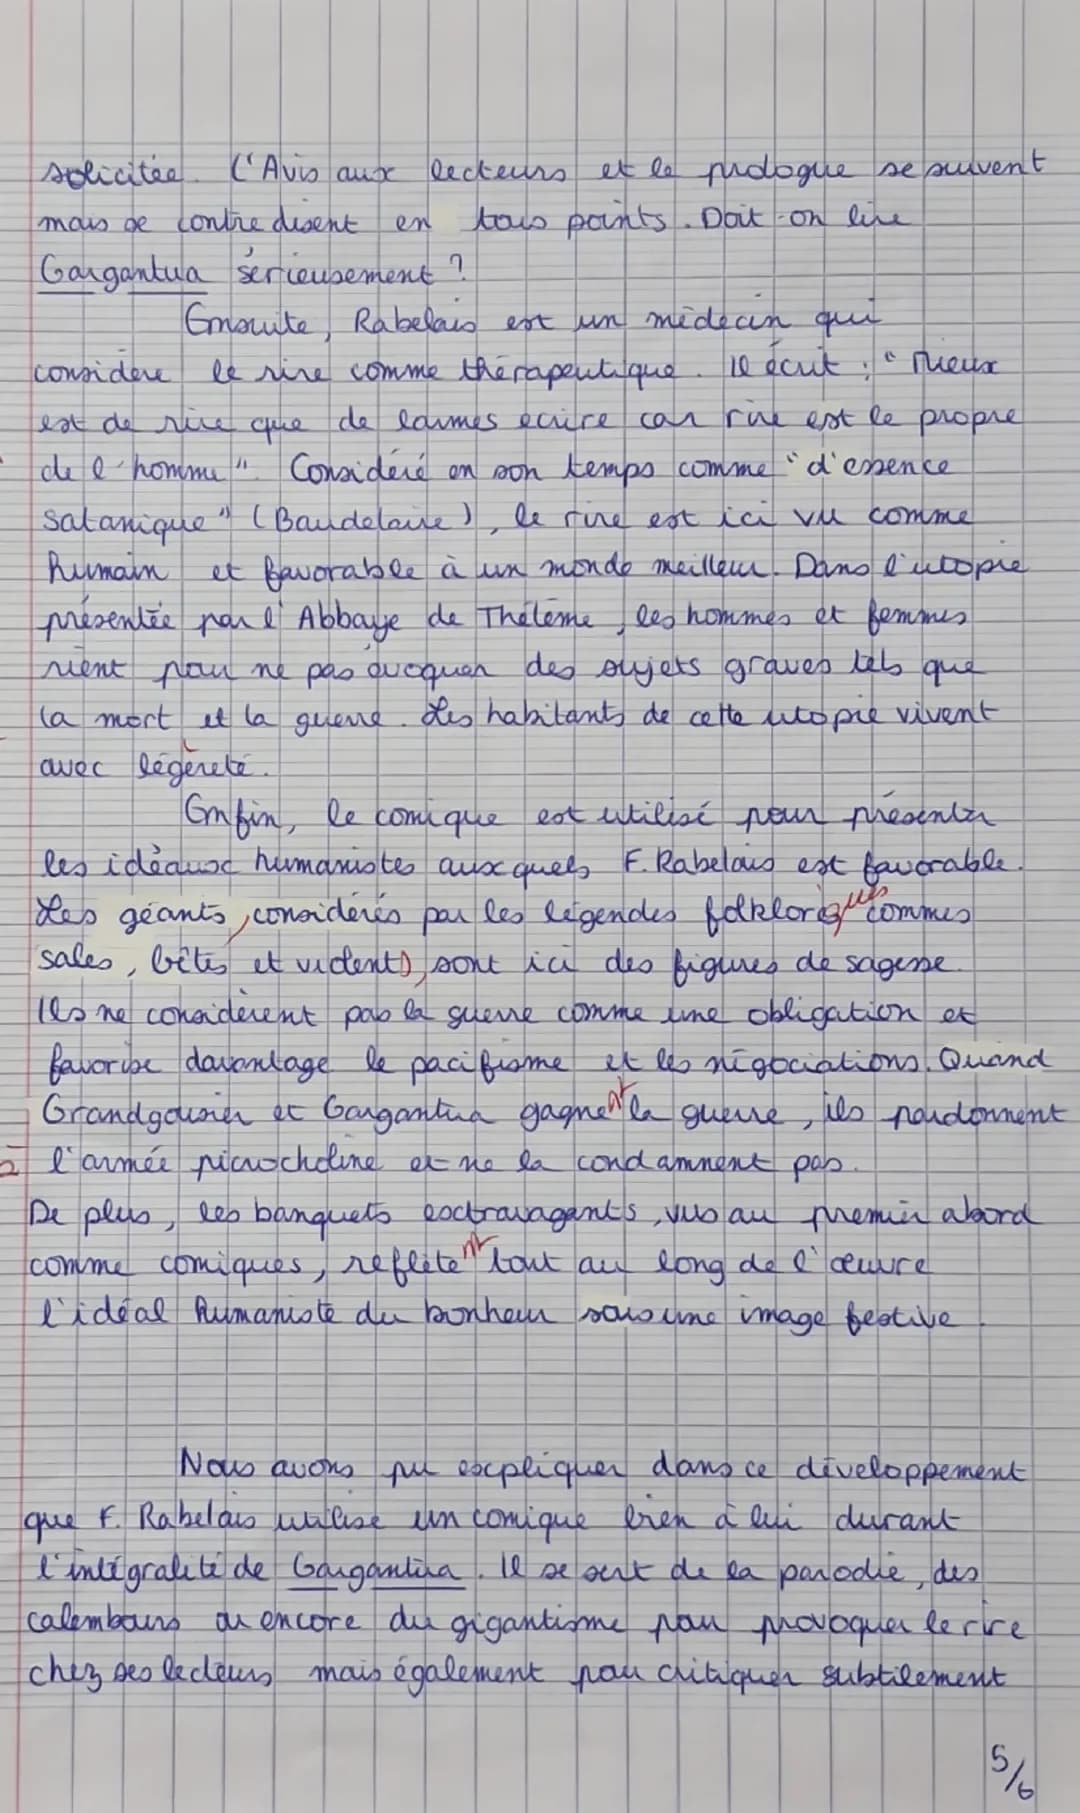 solicitée. L'Avis aux lecteurs et le prologue se suivent
mais se contredisent en tous points. Doit-on lire
Gargantua sérieusement ?
Ensuite, Rabelais est un médecin qui
considère le rire comme thérapeutique. Il écrit : "Mieux
est de rire que de larmes écrire car rire est le propre
de l'homme". Considéré en son temps comme "d'essence
satanique" (Baudelaire), le rire est ici vu comme
humain et favorable à un monde meilleur. Dans l'utopie
présentée par l'Abbaye de Thélème, les hommes et femmes
rient pour ne pas évoquer des sujets graves tels que
la mort et la guerre. Les habitants de cette utopie vivent
avec légèreté.
Enfin, le comique est utilisé pour présenter
les idéaux humanistes auxquels F. Rabelais est favorable.
Les géants, considérés par les légendes folkloriques commes
sales, bêtes et violents, sont ici des figures de sagesse.
Ils ne considèrent pas la guerre comme une obligation et
favorise davantage le pacifisme et les négociations. Quand
Grandgousier et Gargantua gagnent la guerre, ils pardonnent
l'armée picrocholine et ne la condamnent pas.
De plus, les banquets extravagants, vus au premier abord
comme comiques, reflètent tout au long de l'œuvre
l'idéal humaniste du bonheur sous une image festive.
Nous avons pu expliquer dans ce développement
que F. Rabelais utilise un comique bien à lui durant
l'intégralité de Gargantua. Il se sert de la parodie, des
calembours ou encore du gigantisme pour provoquer le rire
chez ses lecteurs mais également pour critiquer subtilement
5/6